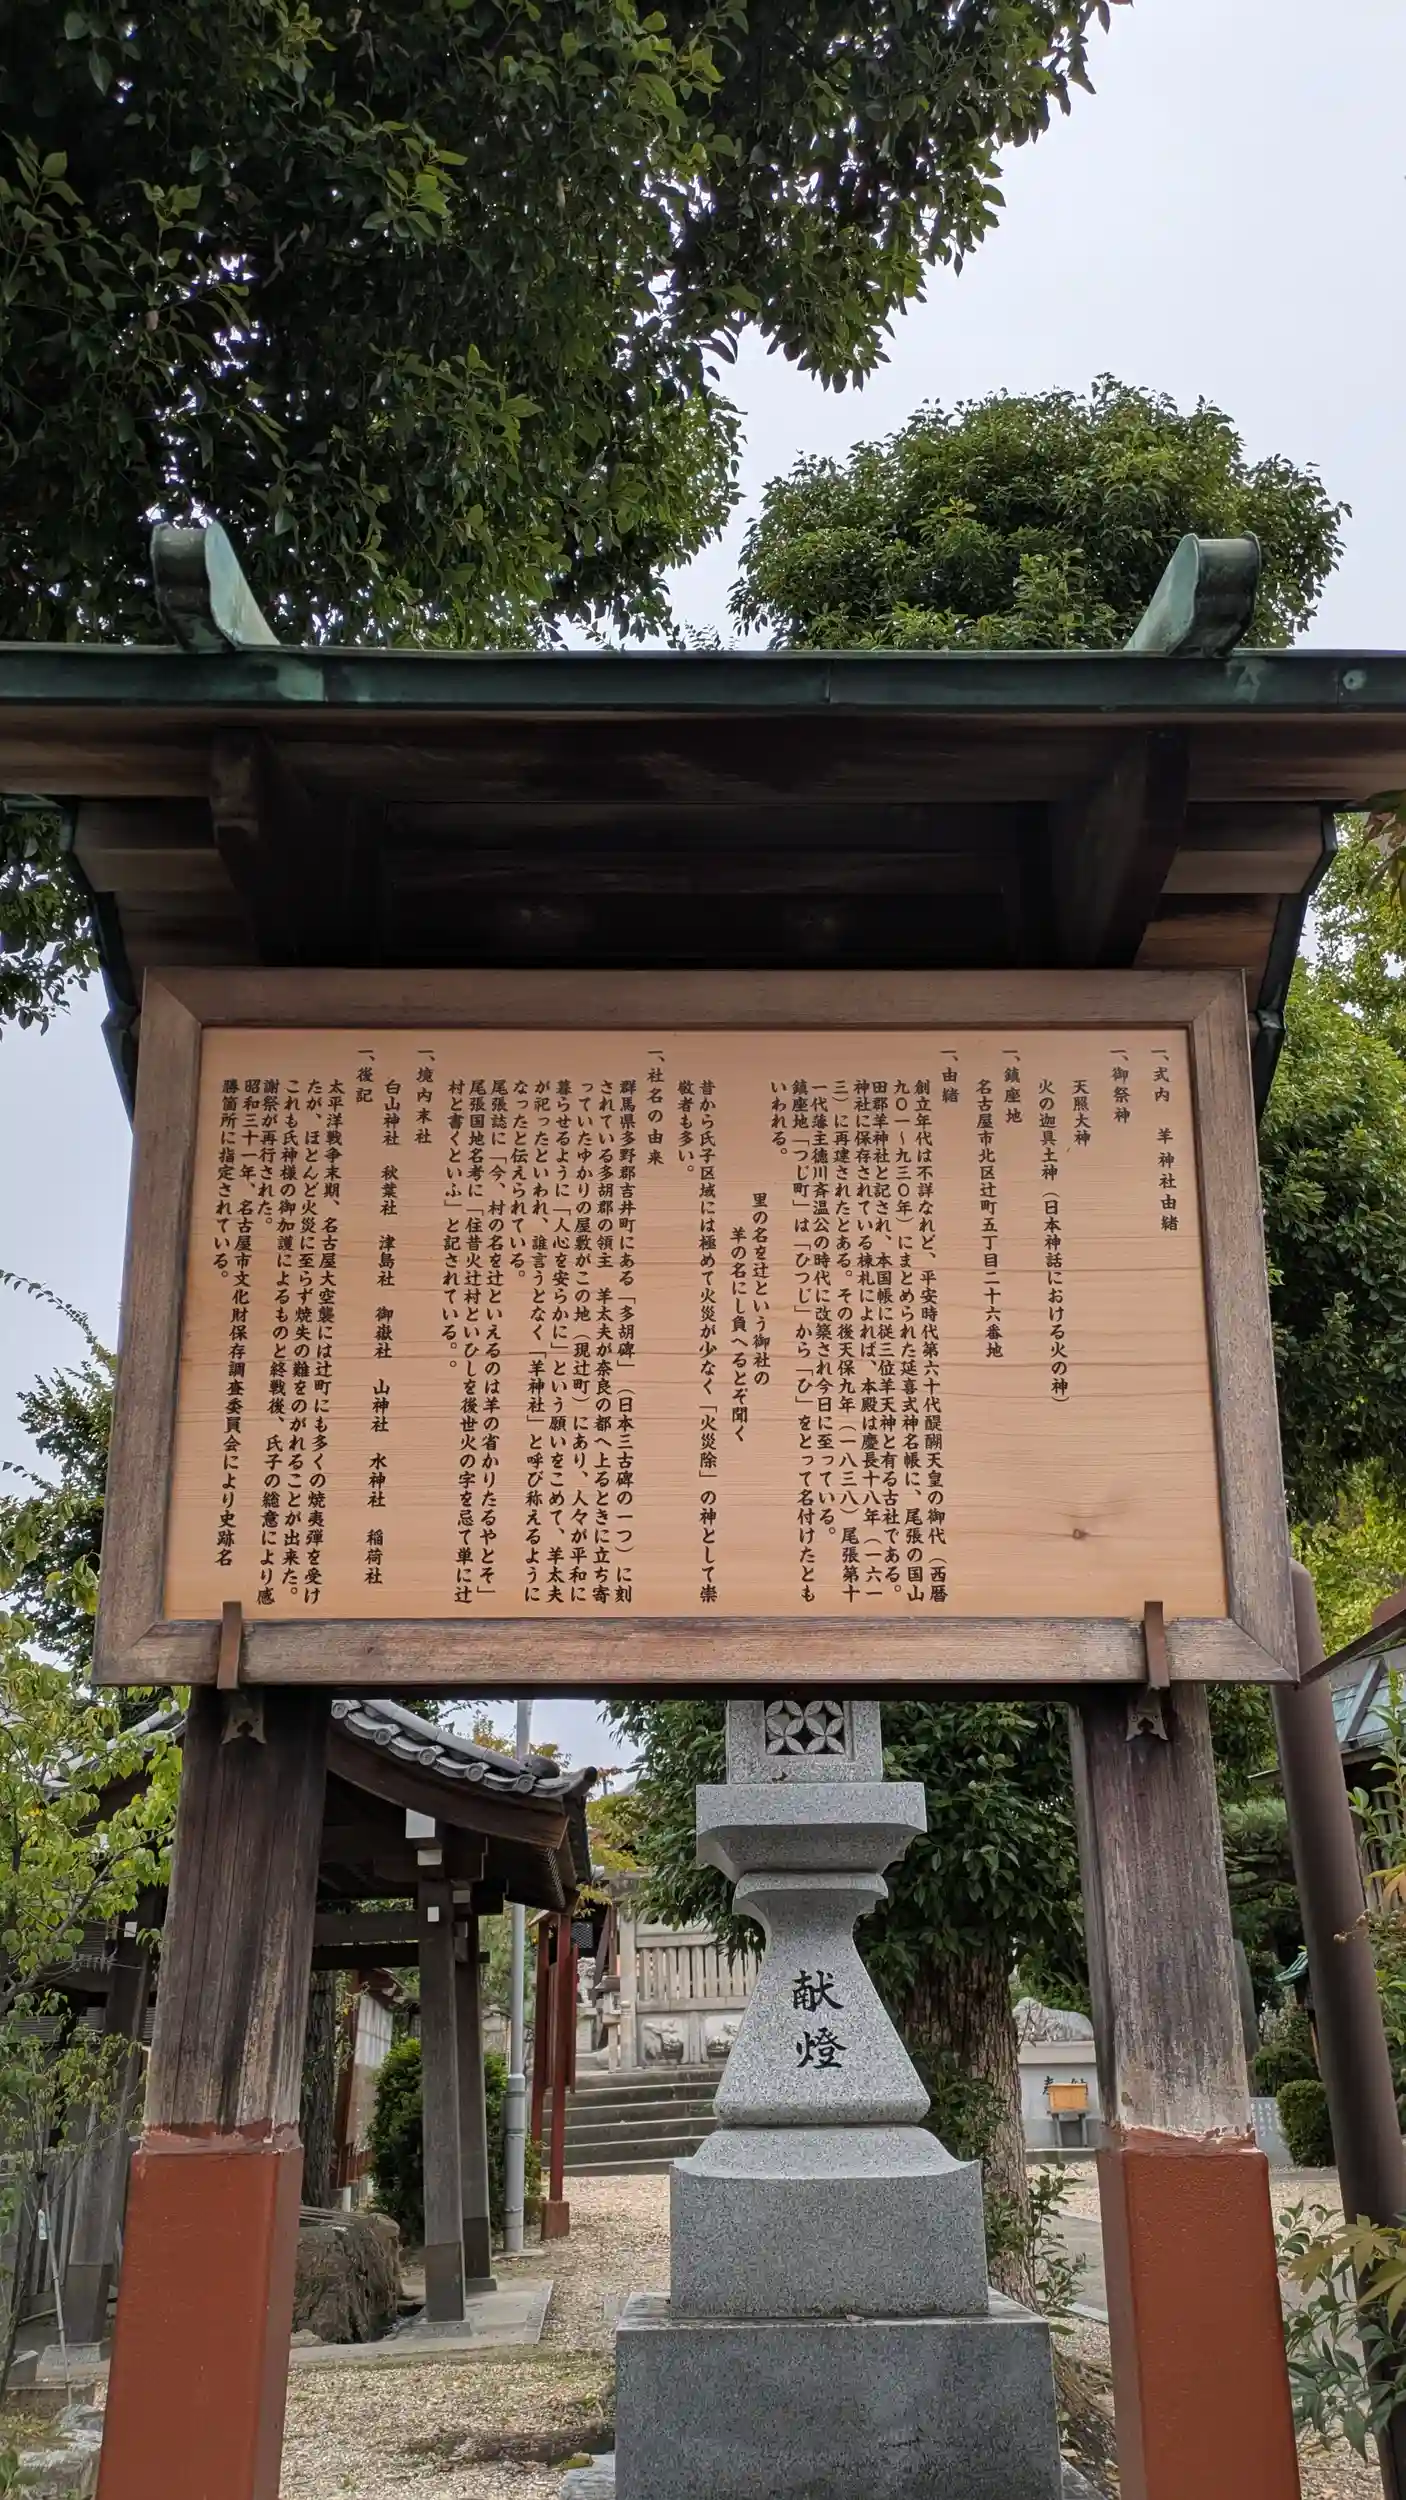 一、式内　羊神社由緒
一、御祭神
天照大神
火の迦具土神（日本神話における火の神）
一、鎮座地
名古屋市北区辻町五丁目二十六番地
一、由緒
創立年代は不詳なれど、平安時代第六十代醍醐天皇の御代（西暦
九〇一～九三〇年）にまとめられた延喜式神名帳に、尾張の国山
田郡羊神社と記され、本国帳に従三位羊天神と有る古社である。
神社に保存されている棟札によれば、本殿は慶長十八年（一六一
三）に再建されたとある。その後天保九年（一八三八）尾張第十
一代藩主徳川斉温公の時代に改築され今日に至っている。
鎮座地「つじ町」は「ひつじ」から「ひ」をとって名付けたとも
いわれる。
里の名を辻という御社の
羊の名にし負へるとぞ聞く
昔から氏子区域には極めて火災が少なく「火災除」の神として崇
敬者も多い。
一、社名の由来
群馬県多野郡吉井町にある「多胡碑」（日本三古碑の一つ）に刻
されている多胡郡の領主　羊太夫が奈良の都へ上るときに立ち寄
っていたゆかりの屋敷がこの地（現辻町）にあり、人々が平和に
暮らせるように「人心を安らかに」という願いをこめて、羊太夫
が祀ったといわれ、誰言うとなく「羊神社」と呼び称えるように
なったと伝えられている。
尾張誌に「今、村の名を辻といえるのは羊の省かりたるやとぞ」
尾張国地名考に「往昔火辻村といひしを後世火の字を忌て単に辻
村と書くといふ」と記されている。。
一、境内末社
白山神社　秋葉社　津島社　御嶽社　山神社　水神社　稲荷社
一、後記
太平洋戦争末期、名古屋大空襲には辻町にも多くの焼夷弾を受け
たが、ほとんど火災に至らず焼失の難をのがれることが出来た。
これも氏神様の御加護によるものと終戦後、氏子の総意により感
謝祭が再行された。
昭和三十一年、名古屋市文化財保存調査委員会により史跡名
勝箇所に指定されている。
献燈